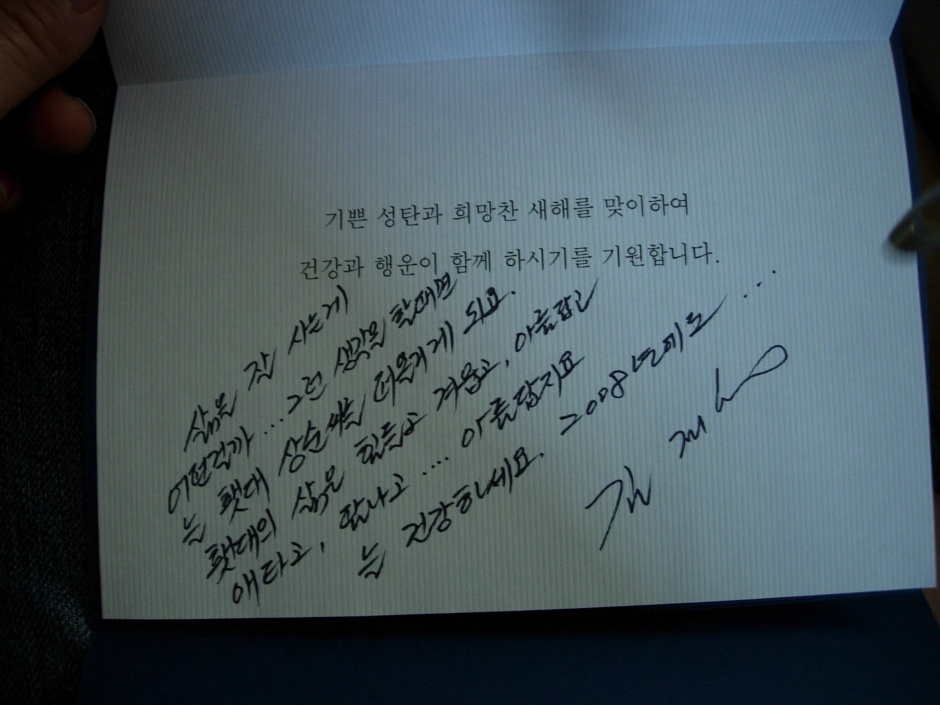 기쁜 성탄과 희망찬 새해를 맞이하여
건강과 행운이 함께 하시기를 기원합니다.
삶을 잘 사는게
어떤걸까... 그런 생각을 할때면
늘 횃대 상순씨를 떠올리게 되요.
횃대의 삶은 힘들고 겨웁고, 아름답고
애타고, 탐나고.... 아름답지요
늘 건강하세요. 2008년에도...
김